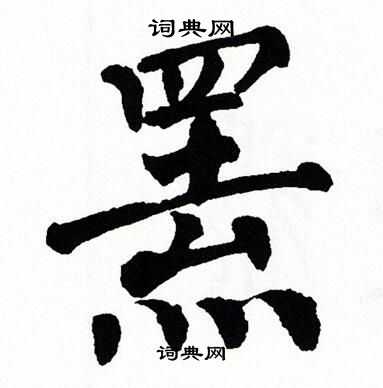 词典网
罴
词典网